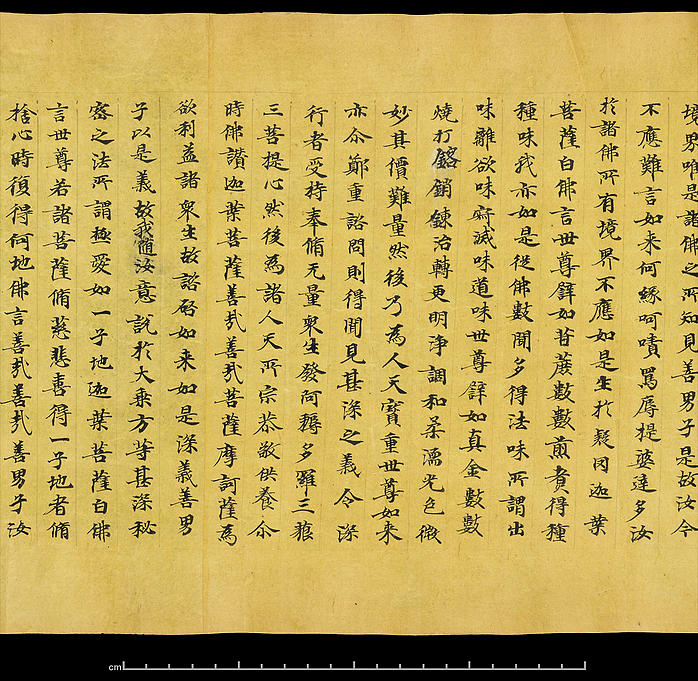 境界唯是諸佛之所知見善男子是故汝今
不應難言如来何緣呵嘖罵辱提婆達多汝
於諸佛所有境界不應如是生於疑囙迦葉
菩薩白佛言世尊譬如甘蔗數數煎煑得種
種味我亦如是従佛數聞多得法味所謂出
味離欲味㓕味道味世尊譬如真金數數
燒打銷鍊冶轉更明淨調和柔濡光色微
妙其價難量然後乃為人天寳重世尊如来
亦尒鄭重諮問則得聞見甚深之義令深
行者受持奉脩无量衆生發阿耨多羅三䫂
三菩提心然後為諸人天所宗恭敬供養尒
時佛讃迦葉菩薩善㢤善㢤菩薩摩訶薩為
欲利益諸衆生故諮啓如来如是深義善男
子以是義故我随汝意說於大乗方等甚深秘
宻之法所謂極愛如一子地迦葉菩薩白佛
言世尊若諸菩薩脩慈悲喜得一子地者脩
捨心時復得何地佛言善㢤善㢤善男子汝
cm